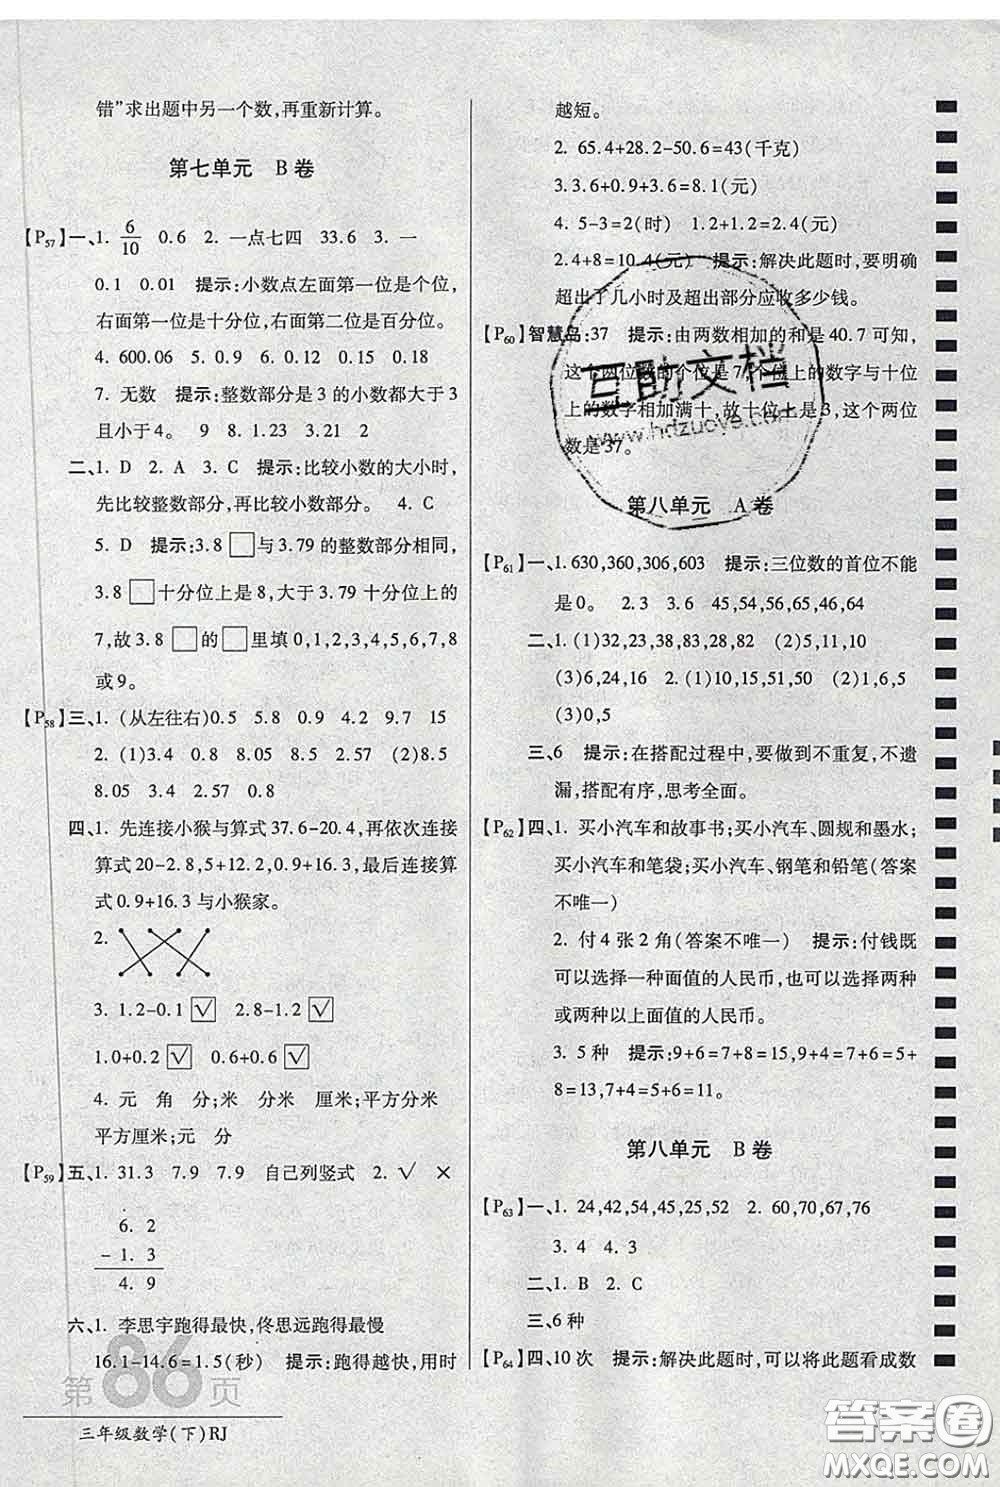 错”求出题中另一个数,再重新计算。
第七单元 B卷
【P57】一、1. 6/10 0.6 2. 一点七四 33.6 3. 一
0.1 0.01 提示:小数点左面第一位是个位,
右面第一位是十分位,右面第二位是百分位。
4. 600.06 5. 0.12 6. 0.9 0.18 0.15
7. 无数 提示:整数部分是 3 的小数都大于 3
且小于 4。 9 8. 1.23 3.21 2
二、1. D 2. A 3. C 提示:比较小数的大小时,
先比较整数部分,再比较小数部分。 4. C
5. D 提示:3.8□与 3.79 的整数部分相同,
3.8□十分位上是 8,大于 3.79 十分位上的
7,故 3.8□的□里填 0,1,2,3,4,5,6,7,8
或 9。
【P58】三、1. (从左往右)0.5 5.8 0.9 4.2 9.7 15
2. (1)3.4 0.8 8.05 2.57 (2)8.5
8.05 3.4 2.57 0.8
四、1. 先连接小猴与算式 37.6-20.4,再依次连接
算式 20-2.8,5+12.2,0.9+16.3,最后连接算
式 0.9+16.3 与小猴家。
2.
3. 1.2-0.1 ☑ 2.8-1.2 ☑
1.0+0.2 ☑ 0.6+0.6 ☑
4. 元 角 分;米 分米 厘米;平方分米
平方厘米;元 分
【P59】五、1. 31.3 7.9 7.9 自己列竖式 2. √ ×
6. 2
- 1. 3
4. 9
六、1. 李思宇跑得最快,佟思远跑得最慢
16.1-14.6=1.5(秒) 提示:跑得越快,用时
第86页
三年级数学(下)RJ
越短。
2. 65.4+28.2-50.6=43(千克)
3. 3.6+0.9+3.6=8.1(元)
4. 5-3=2(时) 1.2+1.2=2.4(元)
2.4+8=10.4(元) 提示:解决此题时,要明确
超出了几小时及超出部分应收多少钱。
【P60】智慧鸟:37 提示:由两数相加的和是 40.7 可知,
这个两位数的个位是 7,个位上的数字与十位
上的数字相加满十,故十位上是 3,这个两位
数是 37。
第八单元 A卷
【P61】一、1. 630,360,306,603 提示:三位数的首位不能
是 0。 2. 3 3. 6 45,54,56,65,46,64
二、1. (1)32,23,38,83,28,82 (2)5,11,10
(3)6,24,16 2. (1)10,15,51,50 (2)1,6,5
(3)0,5
三、6 提示:在搭配过程中,要做到不重复,不遗
漏,搭配有序,思考全面。
【P62】四、1. 买小汽车和故事书;买小汽车、圆规和墨水;
买小汽车和笔袋;买小汽车、钢笔和铅笔(答案
不唯一)
2. 付 4 张 2 角(答案不唯一) 提示:付钱既
可以选择一种面值的人民币,也可以选择两种
或两种以上面值的人民币。
3. 5 种 提示:9+6=7+8=15,9+7=8+8=16,9+5=6+
8=13,7+4=5+6=11。
第八单元 B卷
【P63】一、1. 24,42,54,45,25,52 2. 60,70,67,76
3. 4 4. 3
二、1. B 2. C
三、6种
【P64】四、10 次 提示:解决此题时,可以将此题看成数
互助文档
www.hdzuoye.com
答案圈
MXQE.COM